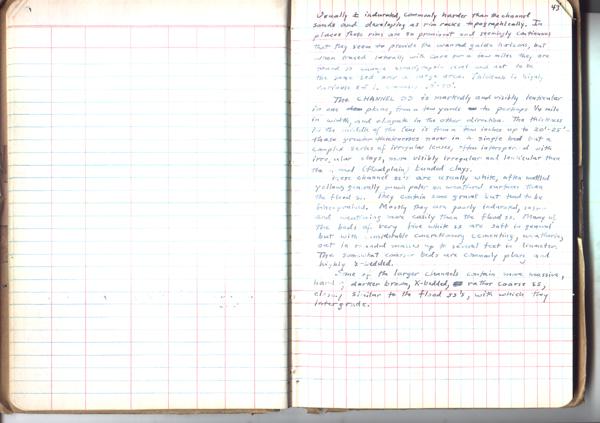 43
Usually indurated, commonly harder than the channel
sands and developing as rim rocks topographically. In
places these rims are so prominent and seemingly continuous
that they seem to provide the wanted guide horizons, but
when traced laterally with care for a few miles they are
found to change stratigraphic level and not to be
the same bed over a large area. Thickness is highly
various
The CHANNEL SS is markedly and visibly lenticular
in one plane, from a few yards to perhaps ½ mile
in width, and elongate in the other direction. The thickness
in the middle of the lens is from a few inches up to 20'-25'-
these greater thicknesses never in a single bed but a
complex series of irregular lenses, often interspersed with
irregular clays, more visibly irregular and lenticular than
the (floodplain) banded clays.
These channel ss's are usually white, often mottled
yellow, generally much paler on weathered surfaces than
the flood ss. They contain some gravel but tend to be
finegrained. Mostly they are poorly indurated,
and weathering more easily than the flood ss. Many of
the beds of very fine white ss are soft in general
but with considerable concretionary cementing, weathering
out in rounded masses up to several feet in diameter.
The somewhat coarser beds are commonly platy and
highly X-bedded.
Some of the larger channels contain more massive,
hard, darker brown, X-bedded, rather coarse ss,
closely similar to the flood ss's, with which they
intergrade.